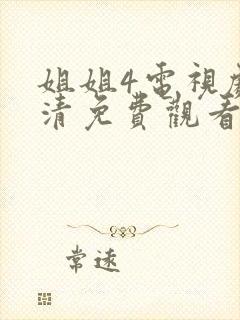 姐姐4電視
清免費觀看
常遠